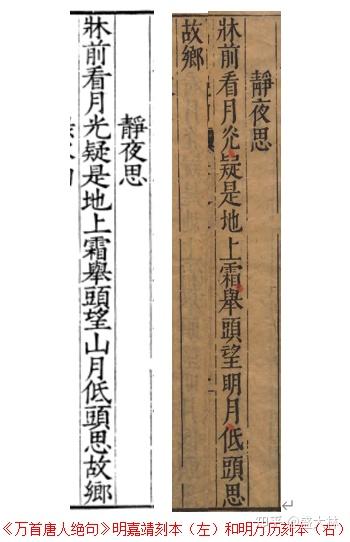 靜夜思
牀前看月光疑是地上霜舉頭望山月低頭思故鄉
靜夜思
牀前看月光疑是地上霜舉頭望明月低頭思
故鄉
知乎 @盛大林
《万首唐人绝句》明嘉靖刻本（左）和明万历刻本（右）